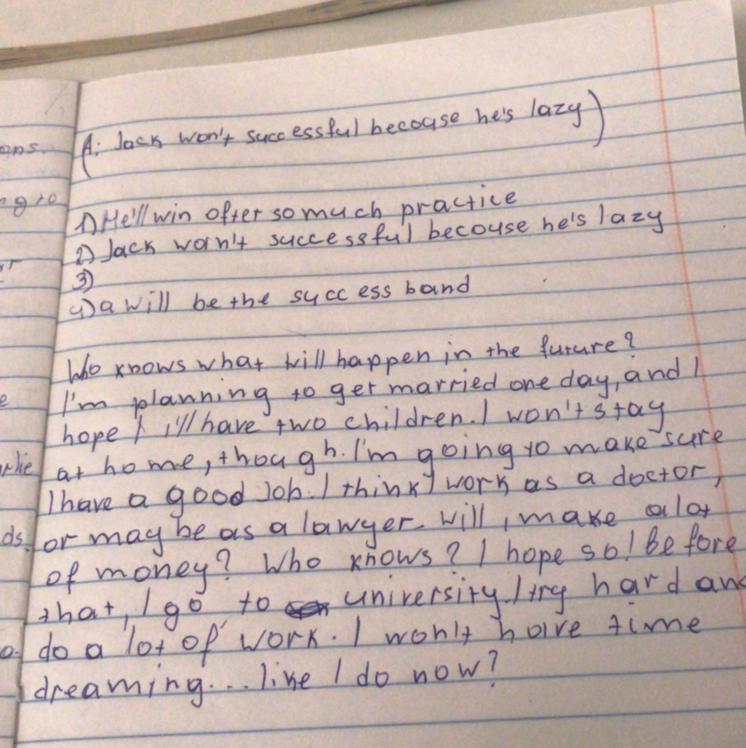 ans.
(A: Jack won't successful becouse he's lazy)
ng to
1) He'll win ofter so much practice
2) Jack won't successful becouse he's lazy
3)
4) a will be the success band
Who knows what will happen in the future?
I'm planning to get married one day, and I
hope I i'll have two children. I won't stay
at home, though. I'm going to make sure
I have a good Job. I think I work as a doctor,
ds. or may be as a lawyer. will, make a lot
of money? Who knows? I hope so! Before
that, I go to university. I try hard and
do a lot of work. I won't have time
dreaming... like I do now?